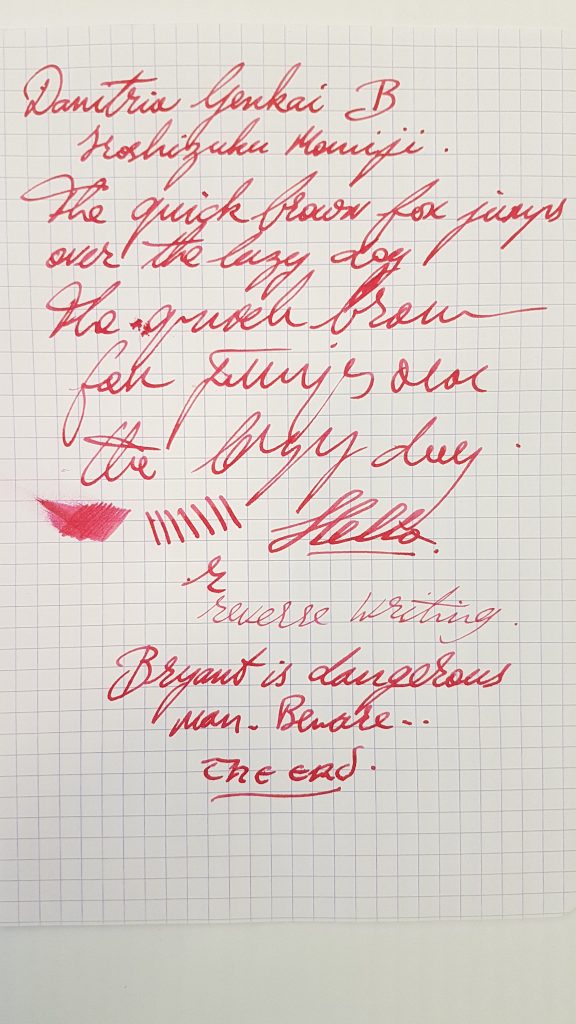 Danitrio Genkai B
Iroshizuku Momiji.
The quick brown fox jumps
over the lazy dog
The quick brown
fox jumps over
the lazy dog.
Hello.
r
reverse writing.
Bryant is dangerous
man. Beware..
THE END.